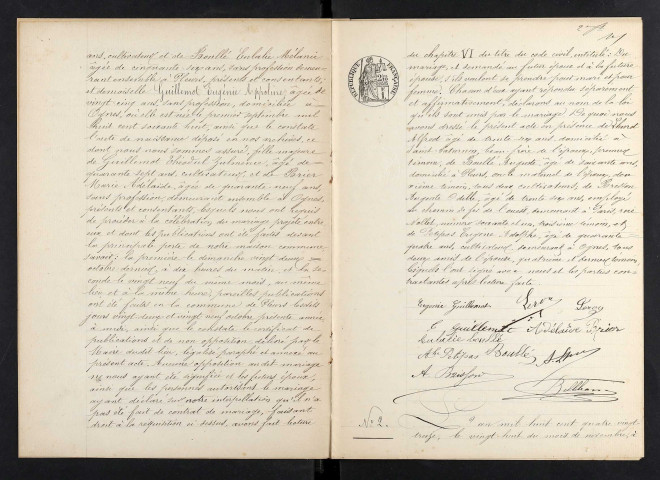 ans, cultivateur, et de Boullé Eulalie Mélanie
âgée de cinquante sept ans, sans profession, demeu-
rant ensemble à Pleurs, présents et consentants;
et demoiselle Guillemot Eugénie Appoline, âgée de
vingt cinq ans, sans profession, domiciliée à
Ognes, où elle est née le premier septembre mil
huit cent soixante huit, ainsi que le constate
l'acte de naissance déposé en nos archives, et
dont nous nous sommes assuré, fille majeure
de Guillemot Théodul, âgé de
quarante sept ans, cultivateur, et de Perrier
Marie Adélaïde, âgée de quarante neuf ans,
sans profession, demeurant ensemble à Ognes,
présents et consentants, lesquels nous ont requis
de procéder à la célébration du mariage projeté entre
eux et dont les publications ont été faites devant
la principale porte de notre maison commune,
savoir: la première le dimanche vingt deux
octobre dernier, à dix heures du matin, et la se-
conde le vingt neuf du même mois, au même
lieu et à la même heure; pareilles publications
ont été faites en la commune de Pleurs lesdits
jours vingt deux et vingt neuf octobre présente année
à midi, ainsi que le constate le certificat de
publications et de non opposition délivré par le
Maire dudit lieu, légalisé, paraphé et annexé au
présent acte. Aucune opposition audit mariage
ne nous ayant été signifiée et les futurs époux,
ainsi que les personnes autorisant le mariage
ayant déclaré sur notre interpellation qu'il n'a
pas été fait de contrat de mariage, faisant
droit à la réquisition ci dessus, avons fait lecture
du chapitre VI du titre du code civil, intitulé: Du
mariage, et demandé au futur époux et à la future
épouse s'ils veulent se prendre pour mari et pour
femme; chacun d'eux ayant répondu séparément
et affirmativement, déclarons au nom de la loi
qu'ils sont unis par le mariage. De quoi nous
avons dressé le présent acte en présence de
Alfred âgé de trente sept ans, domicilié à
beau frère de l'époux, premier
témoin, de Boullé Auguste âgé de soixante ans,
domicilié à Pleurs, oncle maternel de l'époux, deu-
xième témoin, tous deux cultivateurs, de
Auguste âgé de trente sept ans, employé
au chemin de fer de l'ouest, demeurant à Paris, rue
Nollet, troisième témoin, et
de Petitpas Adolphe, âgé de quarante
quatre ans, cultivateur, demeurant à Ognes, tous
deux amis de l'épouse, quatrième et dernier témoin,
lesquels l'ont signé avec nous et les parties con-
tractantes après lecture faite.
Eugénie Guillemot Leroy
E Guillemot Adélaïde Perrier
Eulalie Boullé
Ab Petitpas Boullé
A
N° 2.
L'an mil huit cent quatre vingt
treize, le vingt huit du mois de novembre, à